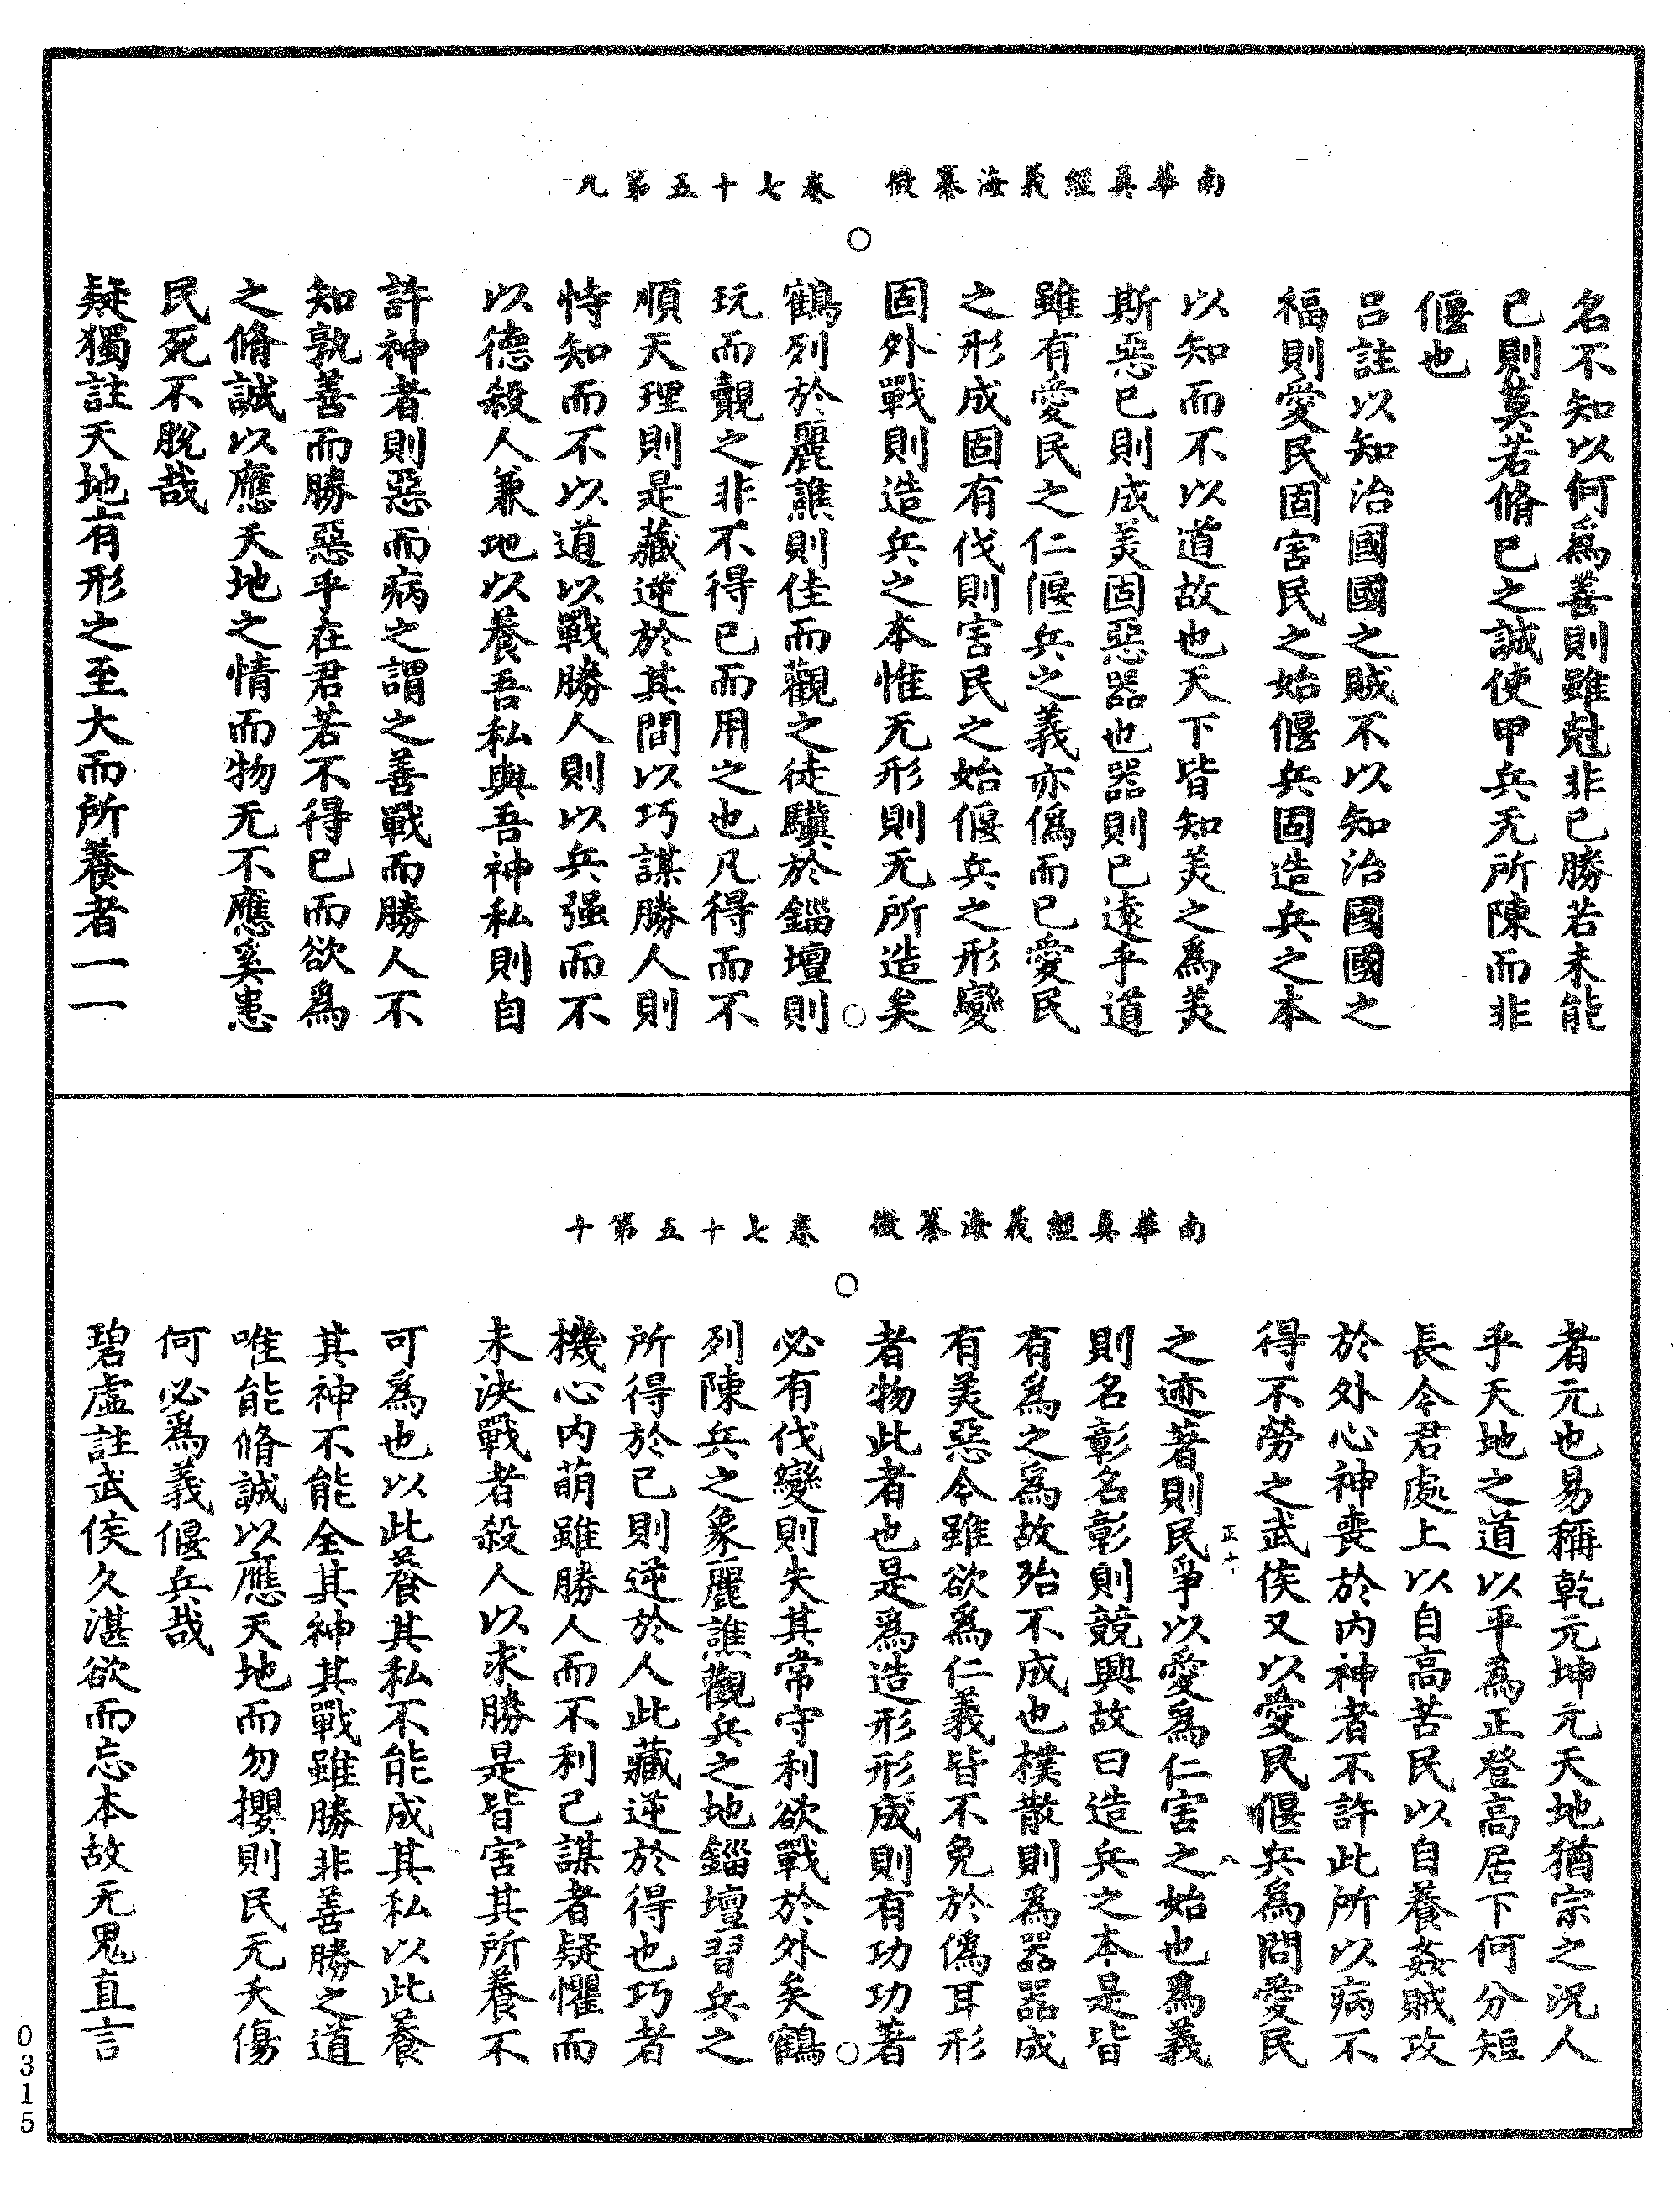 南華真經義海纂微　卷七十五第九
名不知以何爲善則雖尅非己勝若未能
已則莫若脩已之誠使甲兵无所陳而非
偃也
呂註以知治國國之賊不以知治國國之
福則愛民固害民之始偃兵固造兵之本
以知而不以道故也天下皆知羙之爲羙
斯惡已則成羙固惡器也器則已遠乎道
雖有愛民之仁偃兵之義亦僞而已愛民
之形成固有伐則害民之始偃兵之形變
固外戰則造兵之本惟无形則无所造矣
鶴列於麗譙則佳而觀之徒驥於錙壇則
玩而覿之非不得已而用之也凡得而不
順天理則是藏逆於其間以巧謀勝人則
恃知而不以道以戰勝人則以兵强而不
以德殺人兼地以養吾私與吾神私則自
許神者則惡而病之謂之善戰而勝人不
知孰善而勝惡乎在君若不得已而欲爲
之脩誠以應天地之情而物无不應奚患
民死不脫哉
疑獨註天地有形之至大而所養者一一
南華真經義海纂微　卷七十五第十
者元也易稱乾元坤元天地猶宗之況人
乎天地之道以平爲正登高居下何分短
長今君處上以自高苦民以自養姦賊攻
於外心神喪於內神者不許此所以病不
得不勞之武侯又以愛民偃兵爲問愛民
之迹著則民爭以愛爲仁害之始也爲義
則名彰名彰則競興故曰造兵之本是皆
有爲之爲故殆不成也樸散則爲器器成
有美惡今雖欲爲仁義皆不免於僞耳形
者物此者也是爲造形形成則有功功著
必有伐變則失其常守利欲戰於外矣鶴
列陳兵之象麗譙觀兵之地錙壇習兵之
所得於已則逆於人此藏逆於得也巧者
機心內萌雖勝人而不利己謀者疑懼而
未決戰者殺人以求勝是皆害其所養不
可爲也以此養其私不能成其私以此養
其神不能全其神其戰雖勝非善勝之道
唯能脩誠以應天地而勿攖則民无夭傷
何必爲義偃兵哉
碧虛註武侯久湛欲而忘本故无鬼直言
正十
八
0315